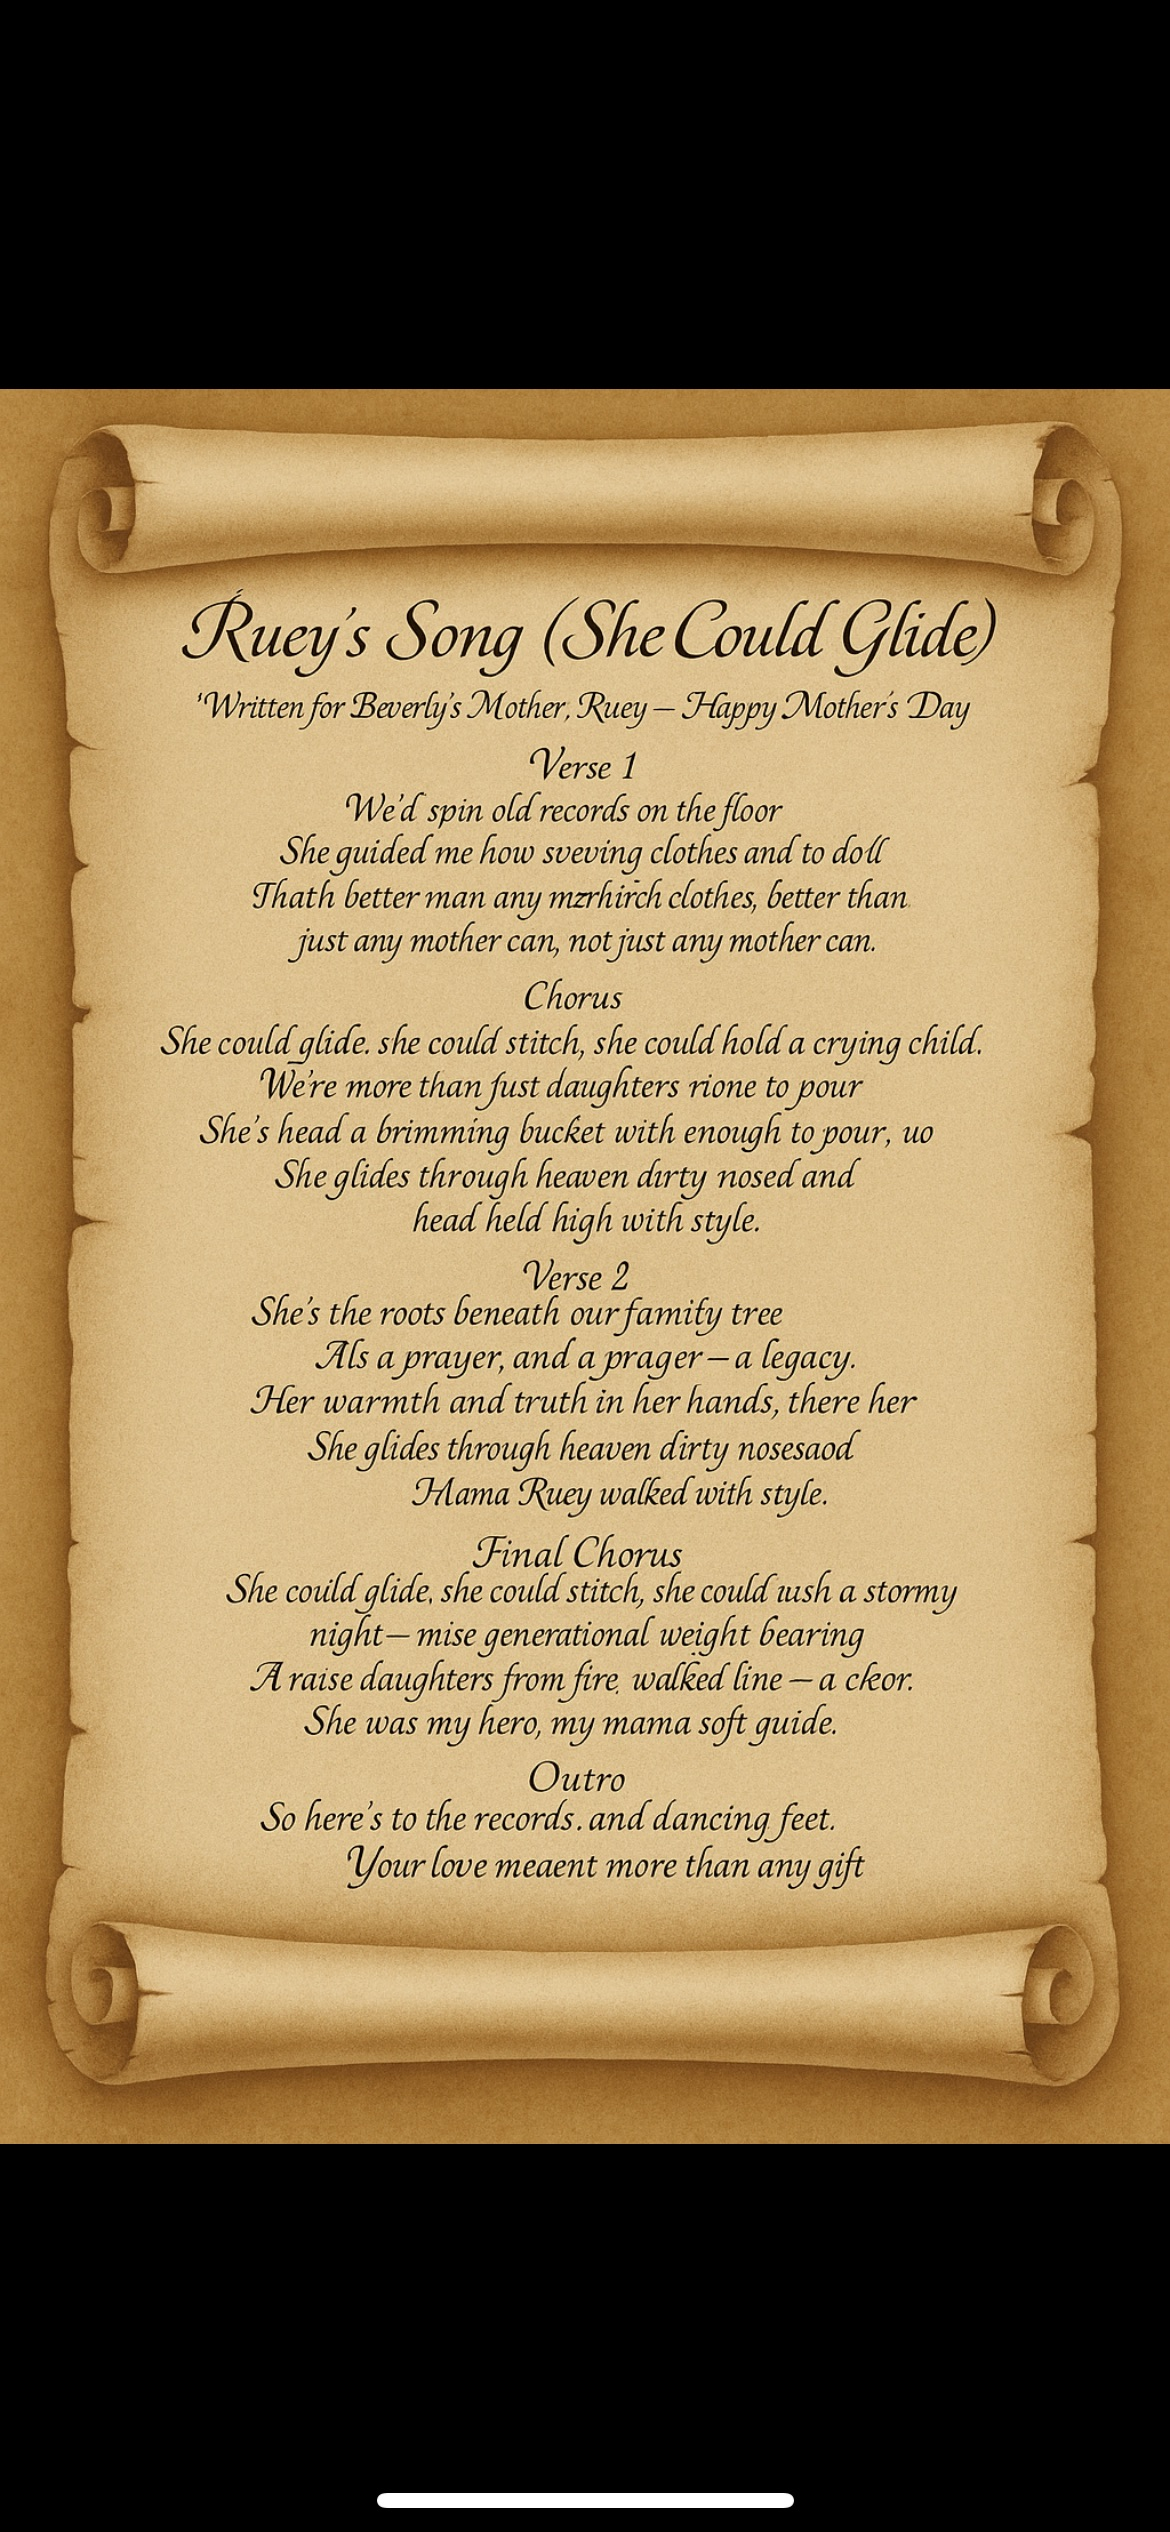 Ruey's Song (She Could Glide)
'Written for Beverly's Mother, Ruey — Happy Mother's Day
Verse 1
We'd spin old records on the floor
She guided me how sveving clothes and to doll
Thath better man any mzrhirch clothes, better than
just any mother can, not just any mother can.
Chorus
She could glide. she could stitch, she could hold a crying child.
We're more than fust daughters rione to pour
She's head a brimming bucket with enough to pour, uo
She glides through heaven dirty nosed and
head held high with style.
Verse 2
She's the roots beneath our famify tree
Als a prayer, and a prager — a legacy.
Her warmth and truth in her hands, there her
She glides through heaven dirty nosesaod
Mama Ruey walked with style.
Final Chorus
She could glide, she could stitch, she could iush a stormy
night — mise generational weight bearing
A raise daughters from fire walked line — a ckor.
She was my hero, my mama soft guide.
Outro
So here's to the records. and dancing feet.
Your love meaent more than any gift